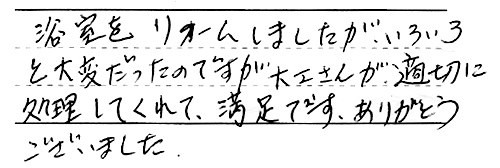 浴室をリホームしましたが、いろいろ
と大変だったのですが大工さんが適切に
処理してくれて、満足です、ありがとう
ございました.